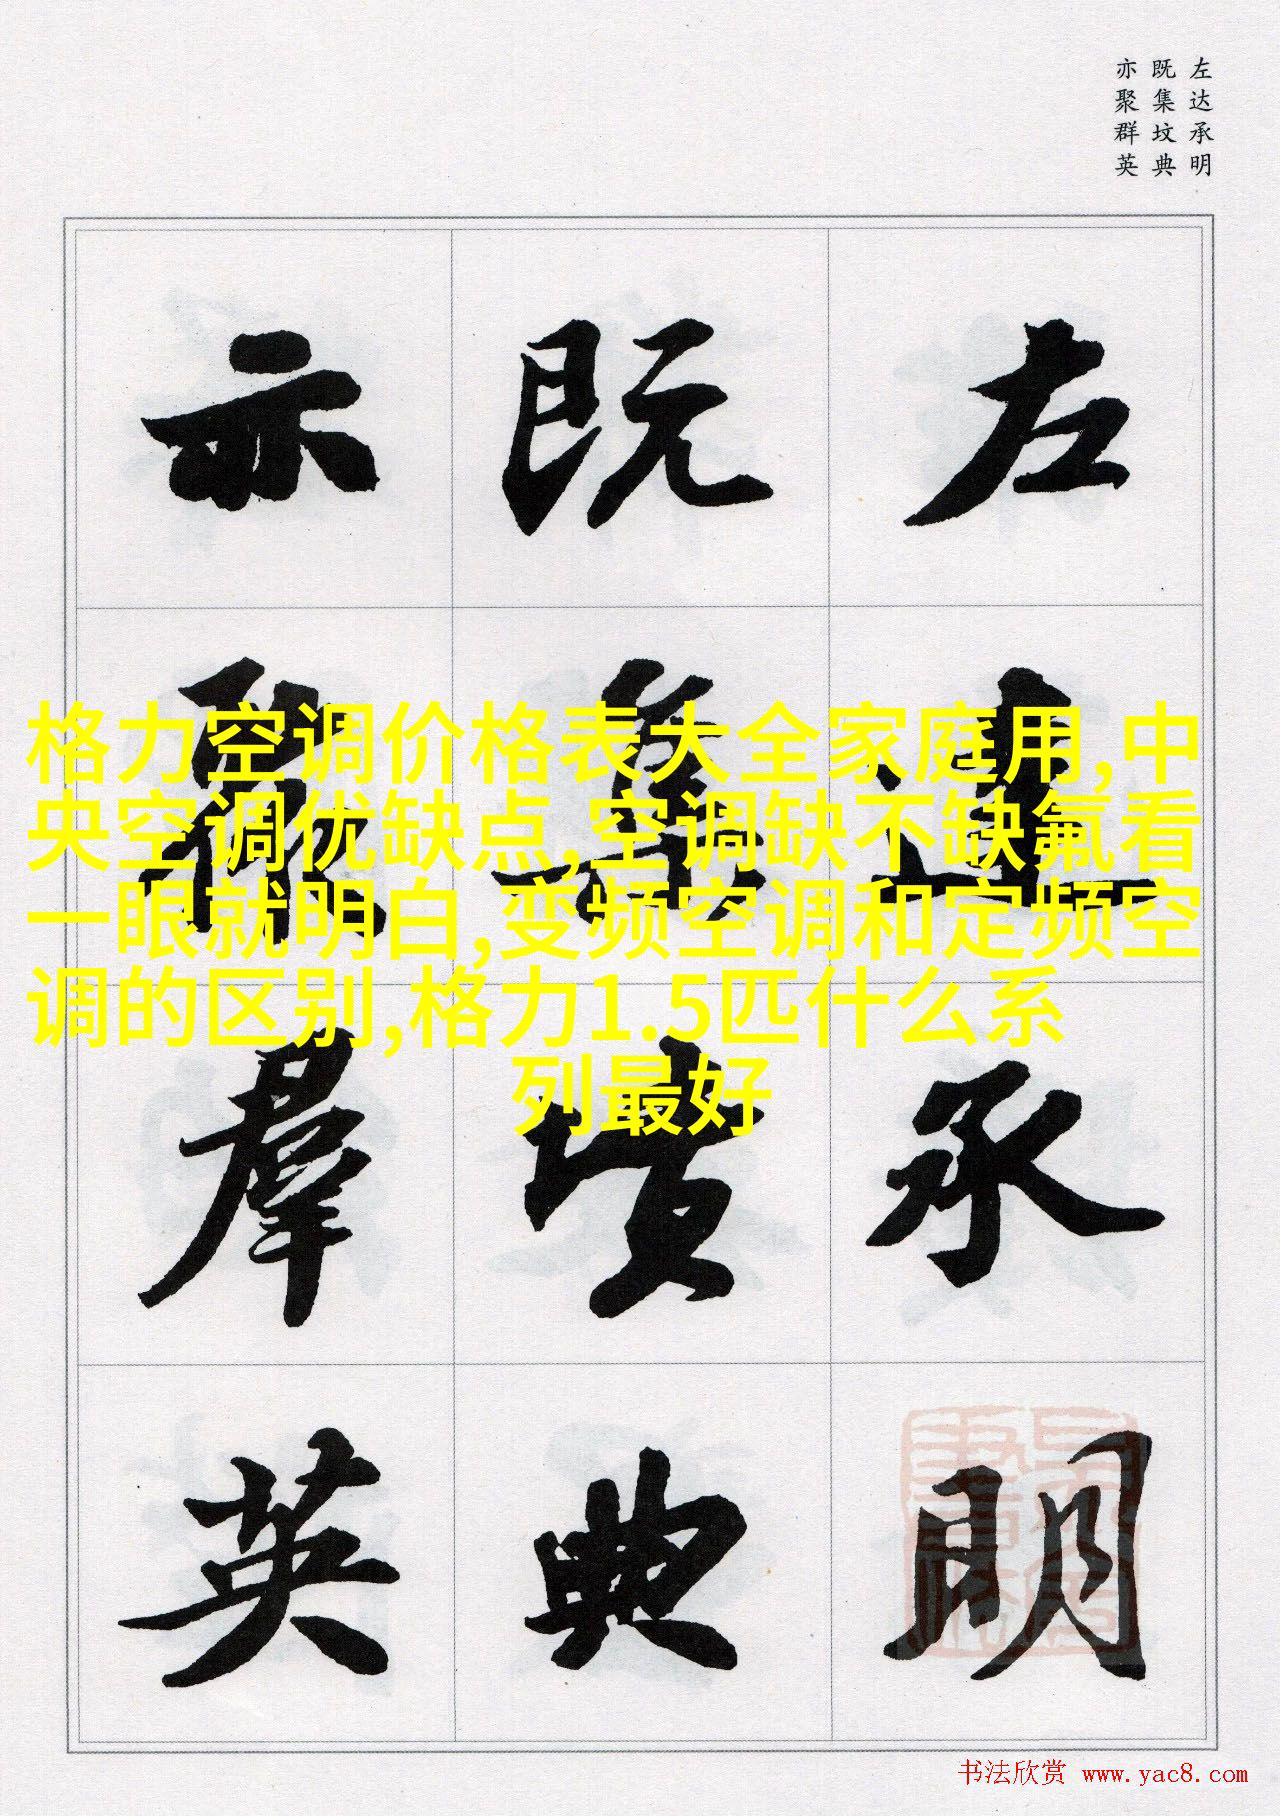 左达承明
既集坟典
亦聚群英
左達承明
既集墳典
亦聚羣英
格力空调价格表大全家庭用,中
央空调优缺点,空调缺不缺氟看
一眼就明白,变频空调和定频空
调的区别,格力1.5匹什么系
列最好
书法欣赏 www.yac8.com